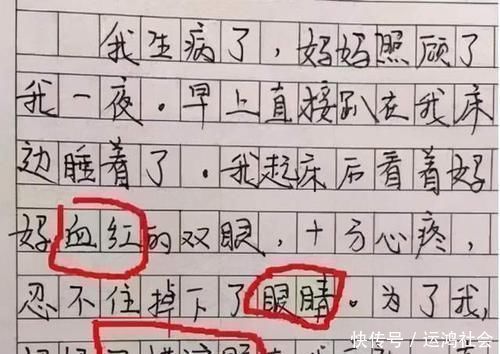 我生病了，妈妈照顾了
我一夜。早上直接趴在我床
边睡着了。我起床后看着好
好血红的双眼，十分心疼，
忍不住掉下了眼睛。为了我，
快传号 / 运鸿社会